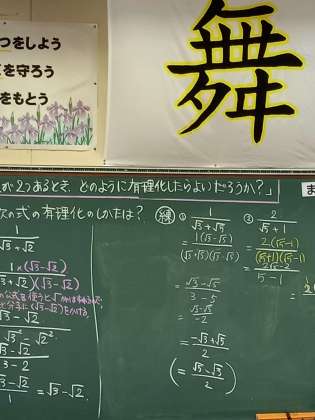 つをしよう
を守ろう
をもとう
舞
が2つあるとき、どのように有理化したらよいだろうか？」
ま
次の式の有理化のしかたは？
1
√3+√2
1×(√3-√2)
(√3+√2)(√3-√2)
√3-√2
√3²-√2²
√3-√2
3-2
√3-√2
1
=√3-√2
練 ① 1
√3+√5
= 1(√3-√5)
(√3+√5)(√3-√5)
= √3-√5
3-5
= √3-√5
-2
= -√3+√5
2
(= √5-√3
2 )
② 2
√5+1
= 2(√5-1)
(√5+1)(√5-1)
= 2√5-2
5-1